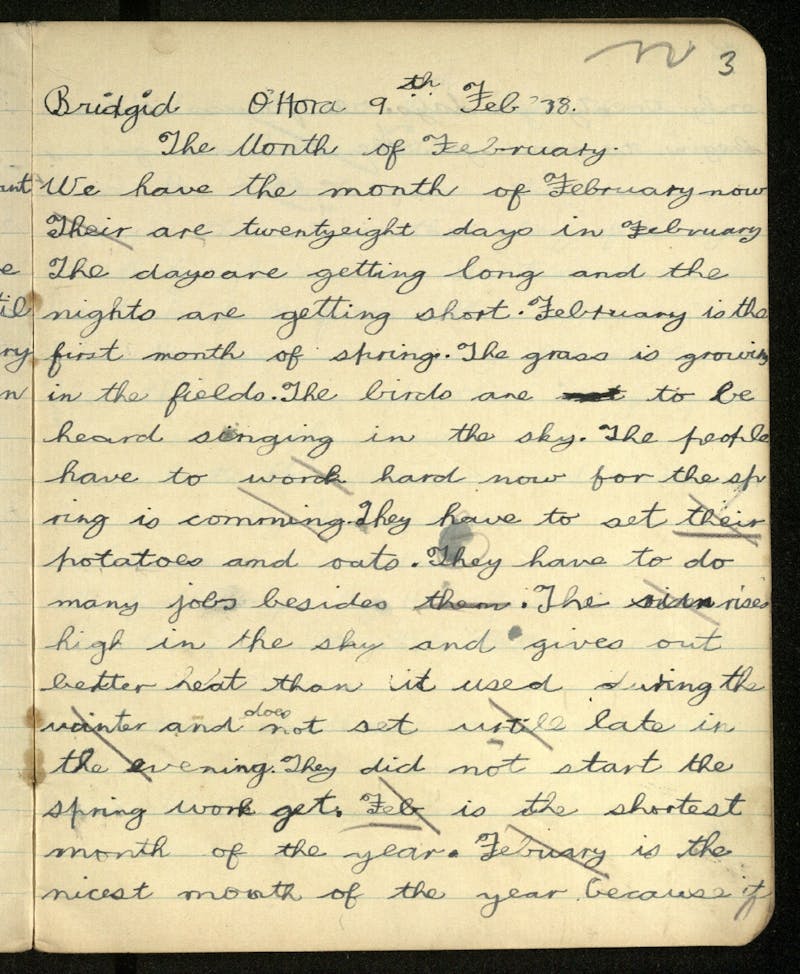 3
Bridgid O'Hora 9th Feb '38.
The Month of February.
We have the month of February now
Their are twentyeight days in February
The days are getting long and the
nights are getting short. February is the
first month of spring. The grass is growing
in the fields. The birds are not to be
heard singing in the sky. The people
have to work hard now for the sp
ring is comming. They have to set their
potatoes and oats. They have to do
many jobs besides them. The sun rises
high in the sky and gives out
better heat than it used during the
winter and does not set untill late in
the evening. They did not start the
spring work get. Feb is the shortest
month of the year. Febuary is the
nicest month of the year because it